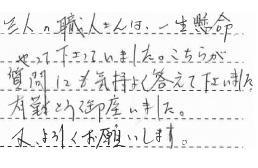 三人の職人さんは、一生懸命
やって下さていました。こちらが
質問にも気持よく答えて下さいました
有難とう御座いました。
又、よろしくお願いします。